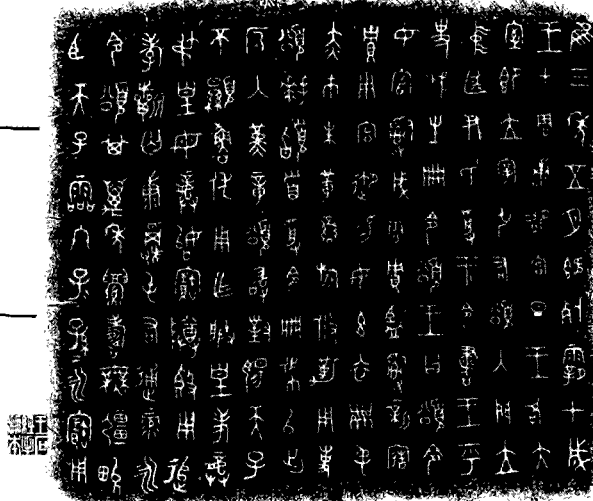 隹三年五月既死霸甲戌
王才周康卲宮旦王各大
室即立宰引右頌入門立
中廷尹氏受王令書王乎
史虢生冊令頌王曰頌令
女官𤔲成周貯監𤔲新造
貯用宮御易女玄衣黹屯
赤巿朱黃䜌旂攸勒用事
頌拜稽首受令冊佩以出
反入堇章頌敢對揚天子
不顯魯休用乍朕皇考龏
弔皇母龏始寶尊簋用追
孝祈匄康𩛥屯右通彔永
令頌其萬年眉壽無疆畯
臣天子霝冬子子孫孫永寶用